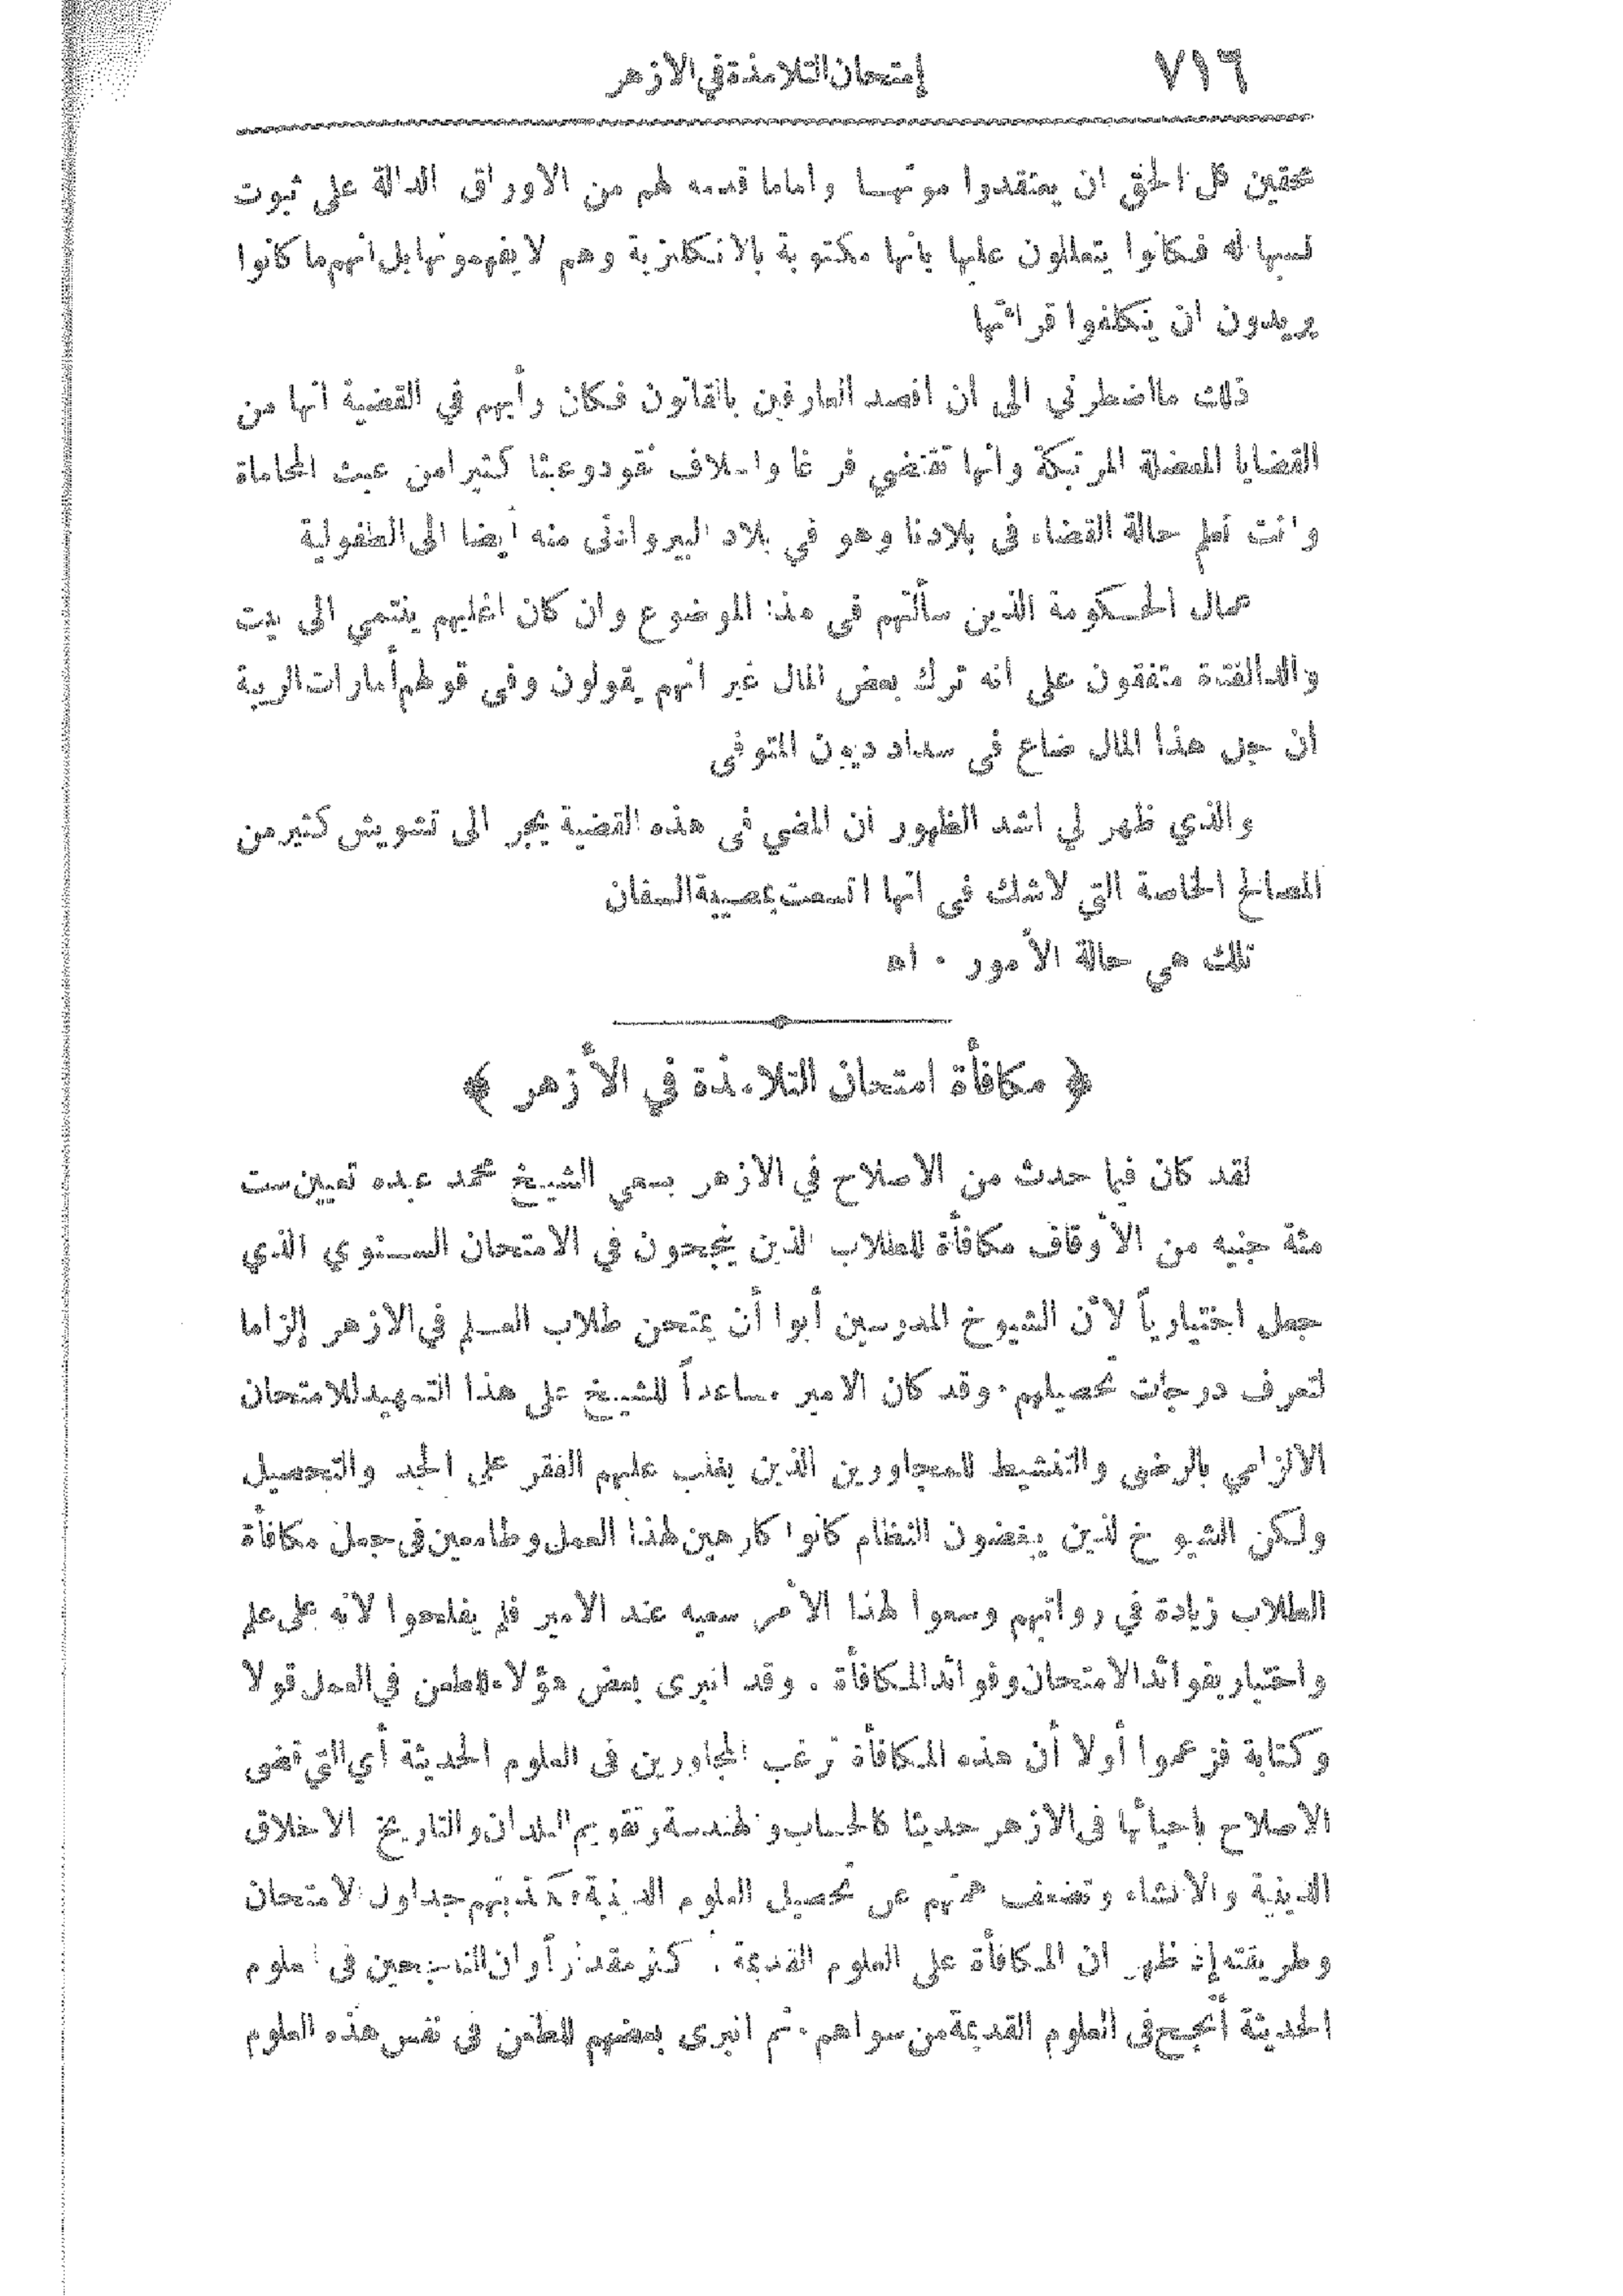 ٧١٦ إمتحان التلامذة في الازهر
محقين كل الحق ان يعتقدوا موتهــا واما ما قدمه لهم من الاوراق الدالة على ثبوت
نسبها له فكانوا يتعللون عليها بانها مكتوبة بالانكليزية وهم لا يفهمونها بل انهم ما كانوا
يريدون ان يتكلفوا قرائتها
ذلك ما اضطرني الى أن اقصد العارفين بالقانون فكان رأيهم في القضية انها من
القضايا المعضلة المرتبكة وانها تقتضي فرغا واسلاف نقود وعبثا كثيرا من عبث المحاماة
وانت تعلم حالة القضاء في بلادنا وهو في بلاد البيرو ادنى منه أيضا الى الطفولية
عمال الحكومة الذين سألتهم في هذا الموضوع وان كان اغلبهم ينتمي الى بيت
والد الفقدة متفقون على انه ترك بعض المال غير انهم يقولون وفي قولهم أمارات الريبة
ان جل هذا المال ضاع في سداد ديون المتوفى
والذي ظهر لي اشد الظهور ان المضي في هذه القضية يجر الى تشويش كثير من
المصالح الخاصة التي لاشك في انها اتسمت
تلك هي حالة الأمور ٠ اهـ
﴿ مكافأة امتحان التلامذة في الأزهر ﴾
لقد كان فيما حدث من الاصلاح في الازهر بسعي الشيخ محمد عبده تعيين ست
مئة جنيه من الأوقاف مكافأة للطلاب الذين ينجحون في الامتحان السنوي الذي
جعل اختيارياً لأن الشيوخ المدرسين أبوا أن يمتحن طلاب العلم في الازهر إلزاما
لتعرف درجات تحصيلهم ٠ وقد كان الامير مساعداً للشيخ على هذا التمهيد للامتحان
الالزامي بالرضى والتنشيط للمجاورين الذين يغلب عليهم الفقر على الجد والتحصيل
ولكن الشيوخ الذين يبغضون النظام كانوا كارهين لهذا العمل وطامعين في جعل مكافأة
الطلاب زيادة في رواتبهم وسعوا لهذا الأمر سعيه عند الامير فلم يفلحوا لانه على علم
واختبار بفوائد الامتحان وفوائد المكافأة . وقد انبرى بعض هؤلاء للطعن في العمل قولا
وكتابة فزعموا أولا أن هذه المكافأة ترغب المجاورين في العلوم الحديثة أي التي قضى
الاصلاح باحيائها في الازهر حديثا كالحساب والهندسة وتقويم البلدان والتاريخ الاخلاق
الدينية والانشاء وتضعف همتهم عن تحصيل العلوم الدينية فكذبتهم جداول الامتحان
وطريقته إذ ظهر ان المكافأة على العلوم القديمة أكثر مقداراً وان الناجحين في العلوم
الحديثة أنجح في العلوم القديمة من سواهم ٠ ثم انبرى بعضهم للطعن في نفس هذه العلوم